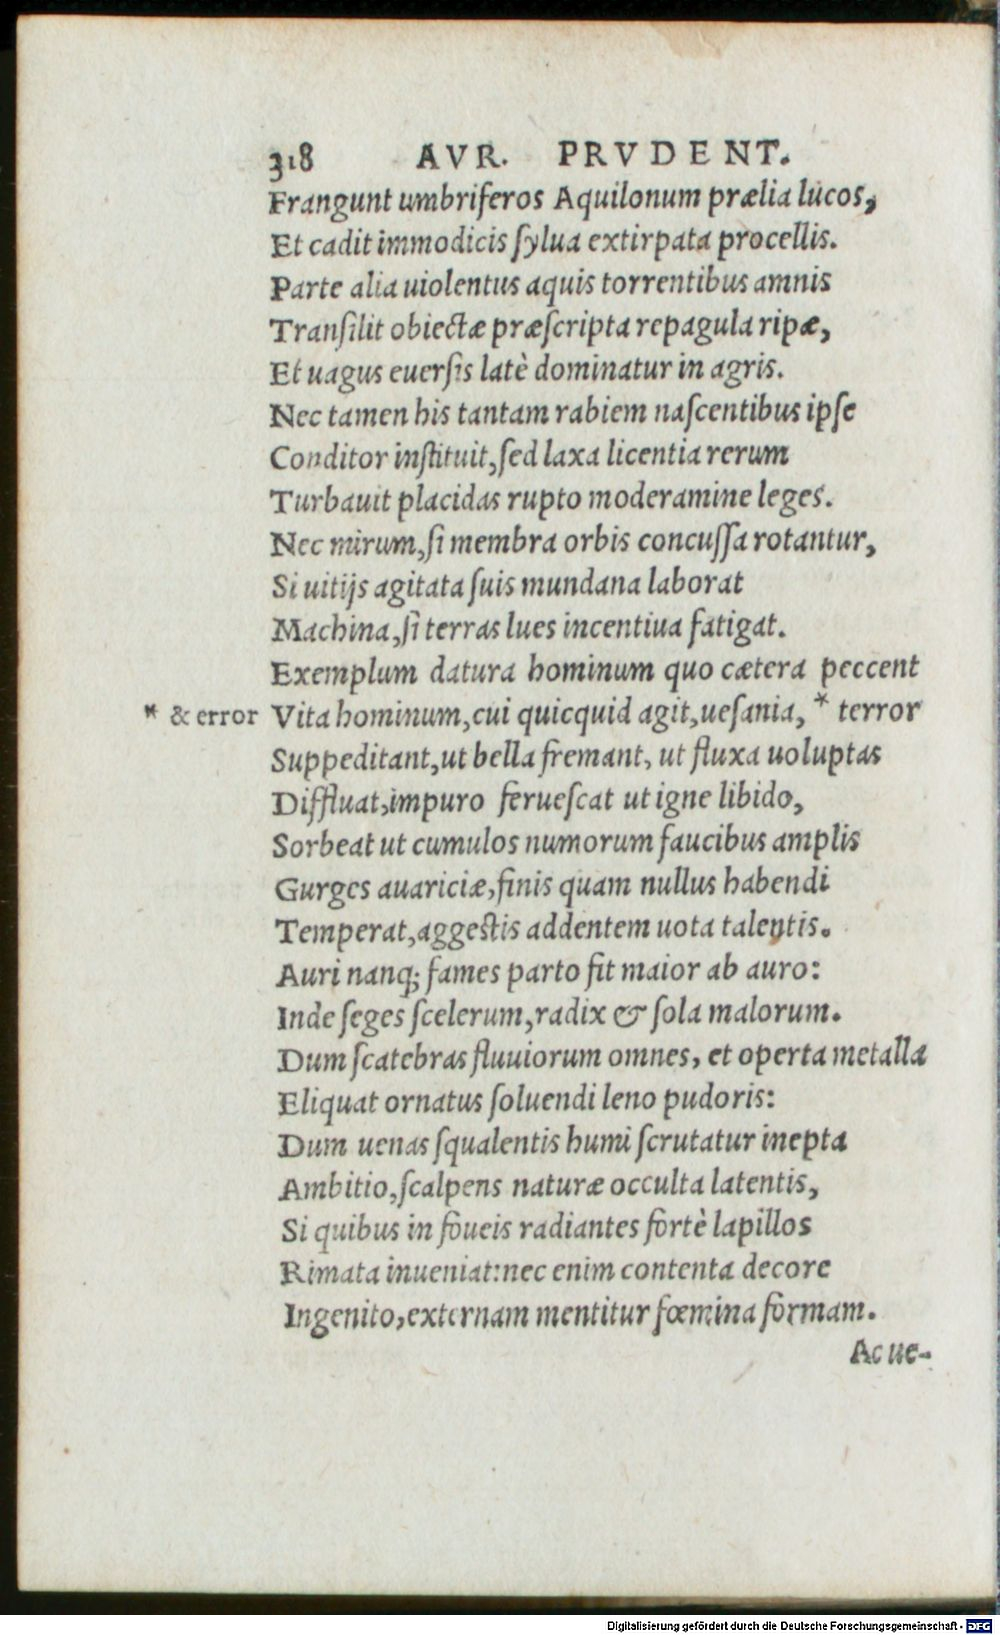 318 AVR. PRVDENT.
Frangunt umbriferos Aquilonum prælia lucos,
Et cadit immodicis ſylua extirpata procellis.
Parte alia uiolentus aquis torrentibus amnis
Tranſilit obiectæ præſcripta repagula ripæ,
Et uagus euerſis latè dominatur in agris.
Nec tamen his tantam rabiem naſcentibus ipſe
Conditor inſtituit, ſed laxa licentia rerum
Turbauit placidas rupto moderamine leges.
Nec mirum, ſi membra orbis concuſſa rotantur,
Si uitijs agitata ſuis mundana laborat
Machina, ſi terras lues incentiua fatigat.
Exemplum datura hominum quo cætera peccent
* & error Vita hominum, cui quicquid agit, ueſania, * terror
Suppeditant, ut bella fremant, ut fluxa uoluptas
Diffluat, impuro ferueſcat ut igne libido,
Sorbeat ut cumulos numorum faucibus amplis
Gurges auariciæ, finis quam nullus habendi
Temperat, aggeſtis addentem uota talentis.
Auri nanq; fames parto fit maior ab auro:
Inde ſeges ſcelerum, radix & ſola malorum.
Dum ſcatebras fluuiorum omnes, et operta metalla
Eliquat ornatus ſoluendi leno pudoris:
Dum uenas ſqualentis humi ſcrutatur inepta
Ambitio, ſcalpens naturæ occulta latentis,
Si quibus in foueis radiantes fortè lapillos
Rimata inueniat: nec enim contenta decore
Ingenito, externam mentitur fœmina formam.
Ac ue-
Digitalisierung gefördert durch die Deutsche Forschungsgemeinschaft - DFG